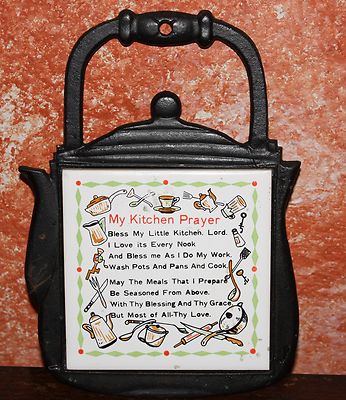 My Kitchen Prayer
Bless My Little Kitchen, Lord.
I Love its Every Nook
And Bless me As I Do My Work,
Wash Pots And Pans And Cook.
May The Meals That I Prepare
Be Seasoned From Above.
With Thy Blessing And Thy Grace
But Most of All Thy Love.